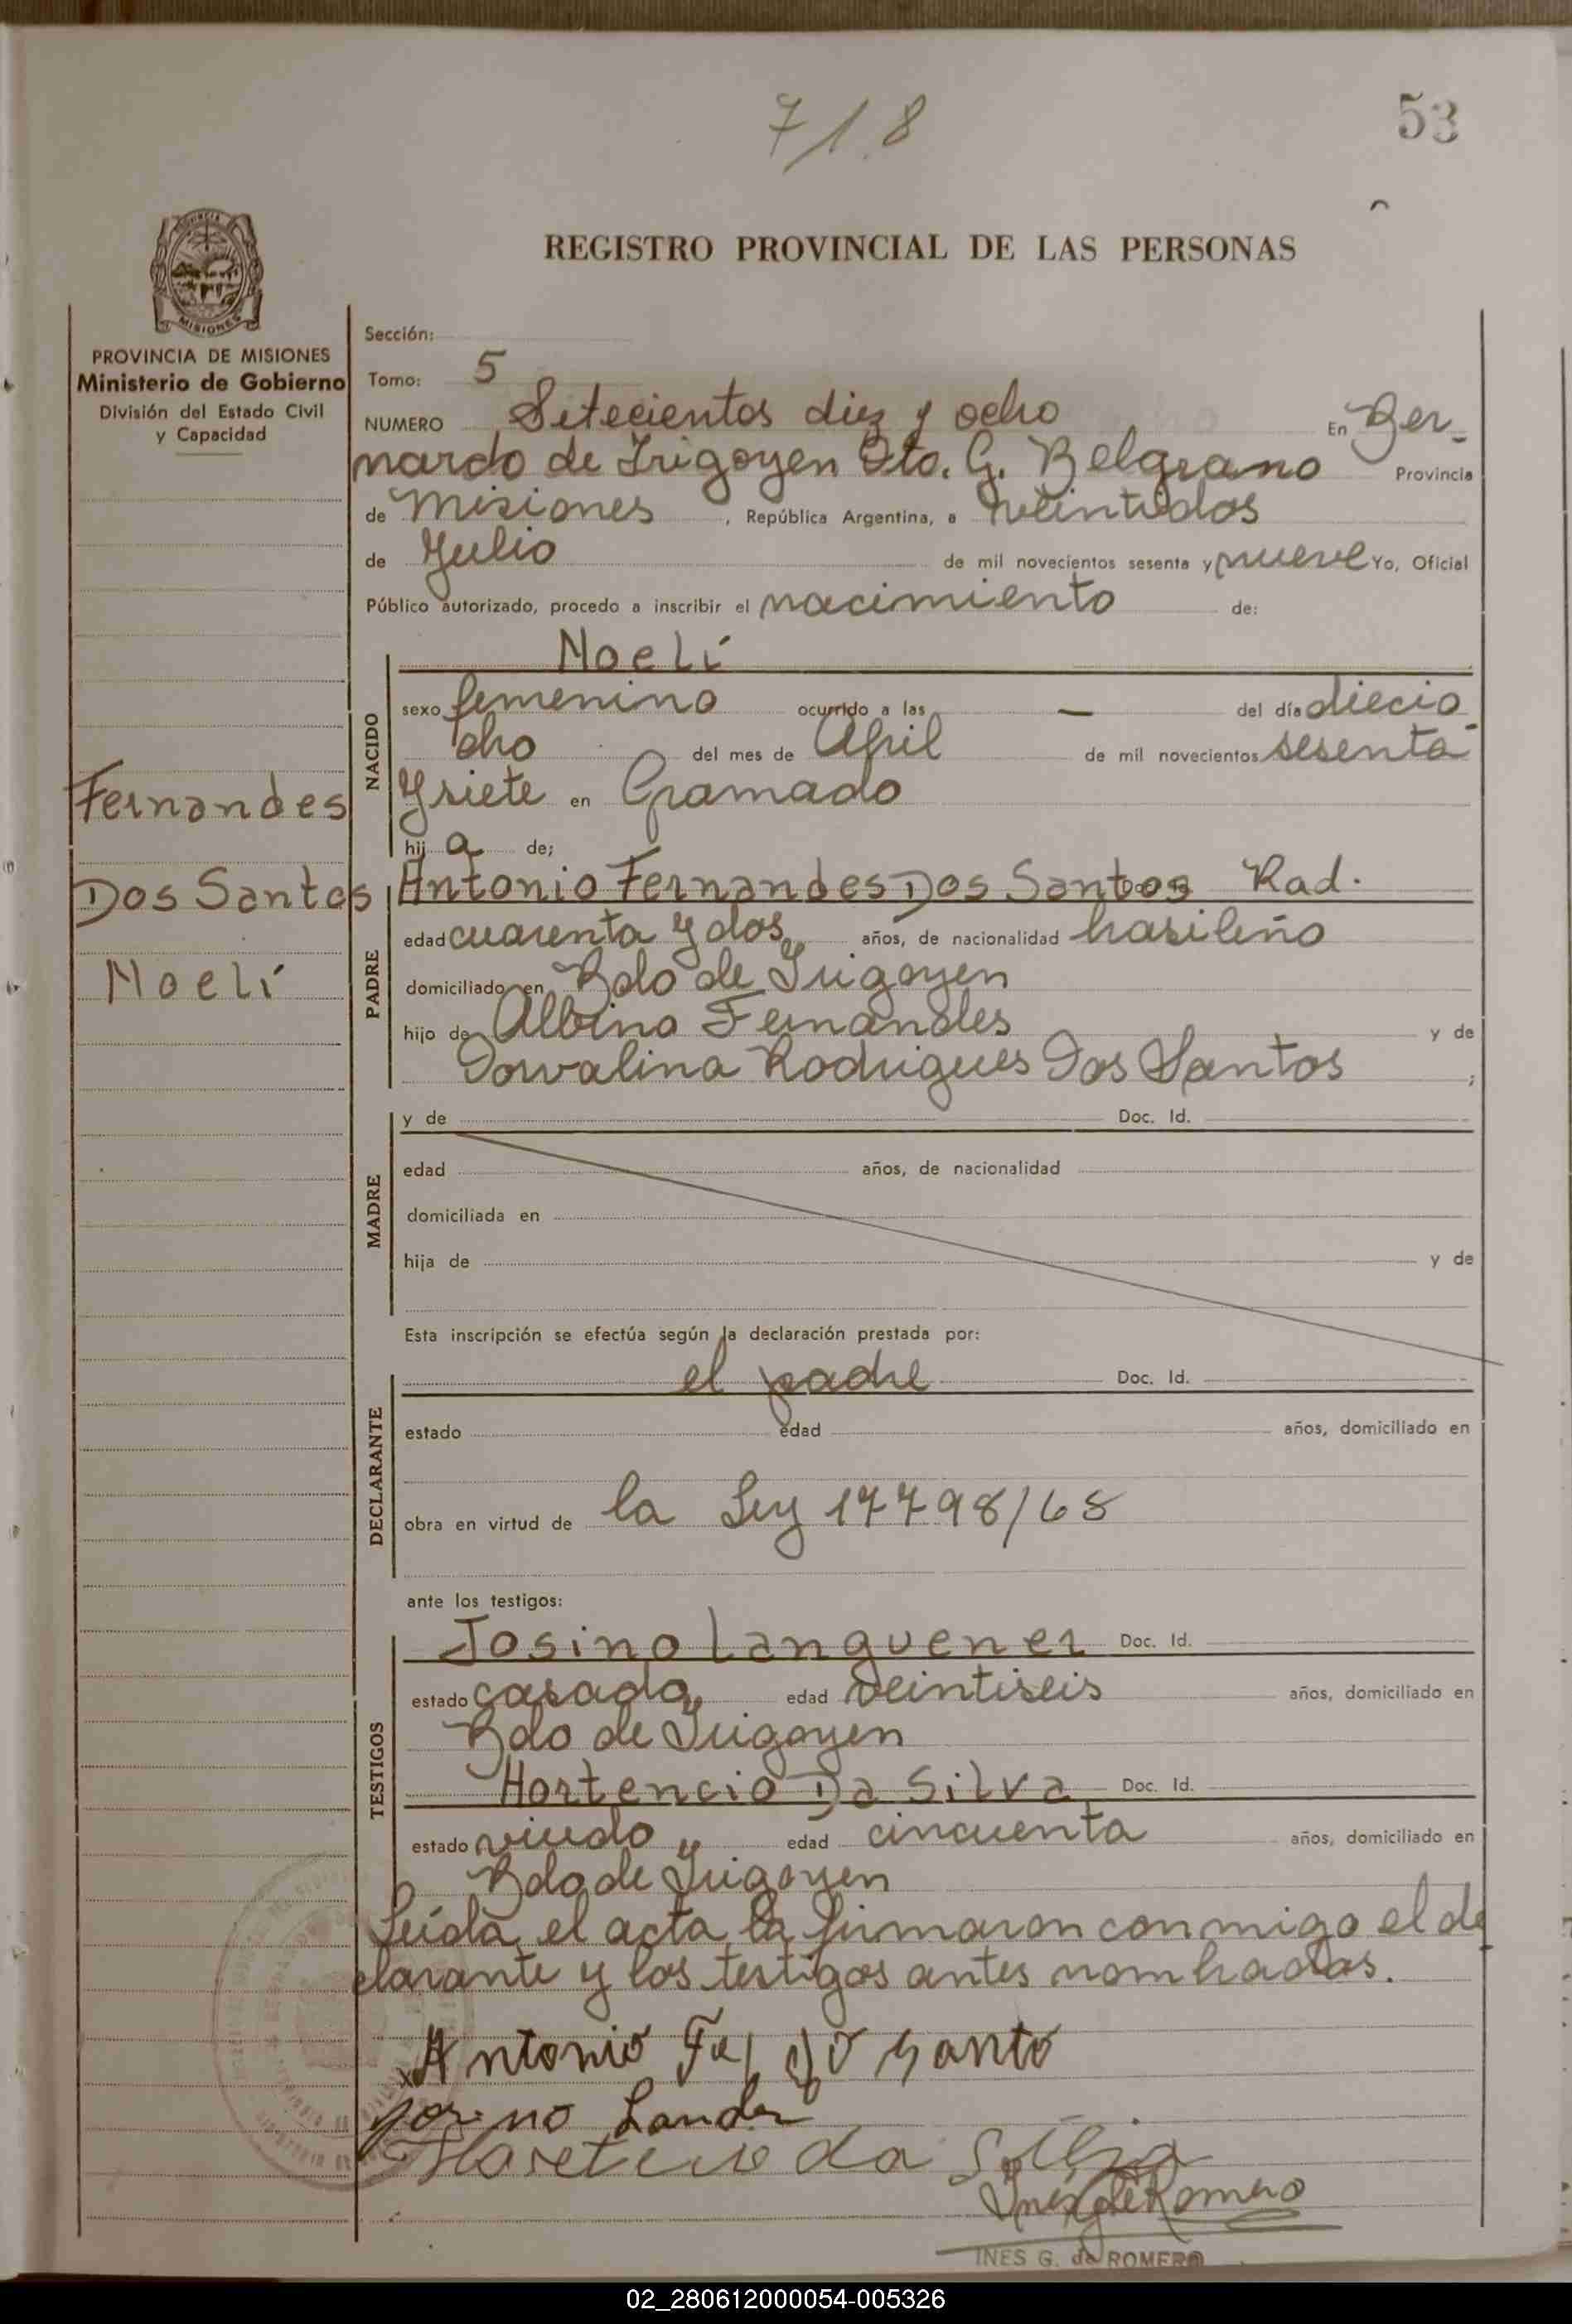 718
53
REGISTRO PROVINCIAL DE LAS PERSONAS
MISIONES
PROVINCIA DE MISIONES
Ministerio de Gobierno
División del Estado Civil
y Capacidad
Fernandes
Dos Santos
Noelí
Sección:
Tomo: 5
NUMERO Setecientos diez y ocho En Ber-
nardo de Irigoyen Dto. G. Belgrano Provincia
de Misiones , República Argentina, a veintidos
de Julio de mil novecientos sesenta y nueve Yo, Oficial
Público autorizado, procedo a inscribir el nacimiento de:
NACIDO
Noelí
sexo femenino ocurrido a las — del día diecio
cho del mes de Abril de mil novecientos sesenta
y siete en Gramado
hij a de;
PADRE
Antonio Fernandes Dos Santos Rad.
edad cuarenta y dos años, de nacionalidad brasileño
domiciliado en Bdo de Irigoyen
hijo de Albino Fernandes y de
Dorvalina Rodrigues Dos Santos ;
MADRE
y de Doc. Id.
edad años, de nacionalidad
domiciliada en
hija de y de
Esta inscripción se efectúa según la declaración prestada por:
DECLARANTE
el padre Doc. Id.
estado edad años, domiciliado en
obra en virtud de la Ley 17798/68
ante los testigos:
TESTIGOS
Josino Languener Doc. Id.
estado casado, edad veintiseis años, domiciliado en
Bdo de Irigoyen
Hortencio Da Silva Doc. Id.
estado viudo, edad cincuenta años, domiciliado en
Bdo de Irigoyen
Leída el acta la firmaron conmigo el de
clarante y los testigos antes nombrados.
Antonio
Inés G de Romero
INES G. de ROMERO
02_280612000054-005326